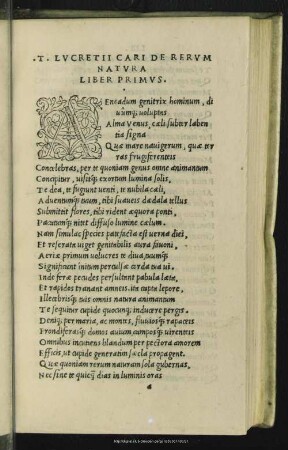 .T. LVCRETII CARI DE RERVM
NATVRA
LIBER PRIMVS.
AEneadum genitrix hominum, di
uumq; uoluptas
Alma Venus, cæli subter laben
tia signa
Quæ mare nauigerum, quæ ter
ras frugiferenteis
Concelebras, per te quoniam genus omne animantum
Concipitur, uisitq; exortum lumina solis,
Te dea, te fugiunt uenti, te nubila cæli,
Aduentumq; tuum, tibi suaueis dædala tellus
Submittit flores, tibi rident æquora ponti,
Pacatumq; nitet diffuso lumine cælum.
Nam simulac species patefacta est uerna diei,
Et reserata uiget genitabilis aura fauoni,
Aeriæ primum uolucres te diua, tuumq;
Significant initum perculsæ corda tua ui.
Inde feræ pecudes persultant pabula læta,
Et rapidos tranant amneis. ita capta lepore,
Illecebrisq; tuis omnis natura animantum
Te sequitur cupide quocunq; inducere pergis.
Deniq; per maria, ac monteis, fluuiosq; rapaceis
Frondiferasq; domos auium, camposq; uirenteis
Omnibus incutiens blandum per pectora amorem
Efficis, ut cupide generatim sæcla propagent.
Quæ quoniam rerum naturam sola gubernas,
Nec sine te quicq̃ dias in luminis oras
a